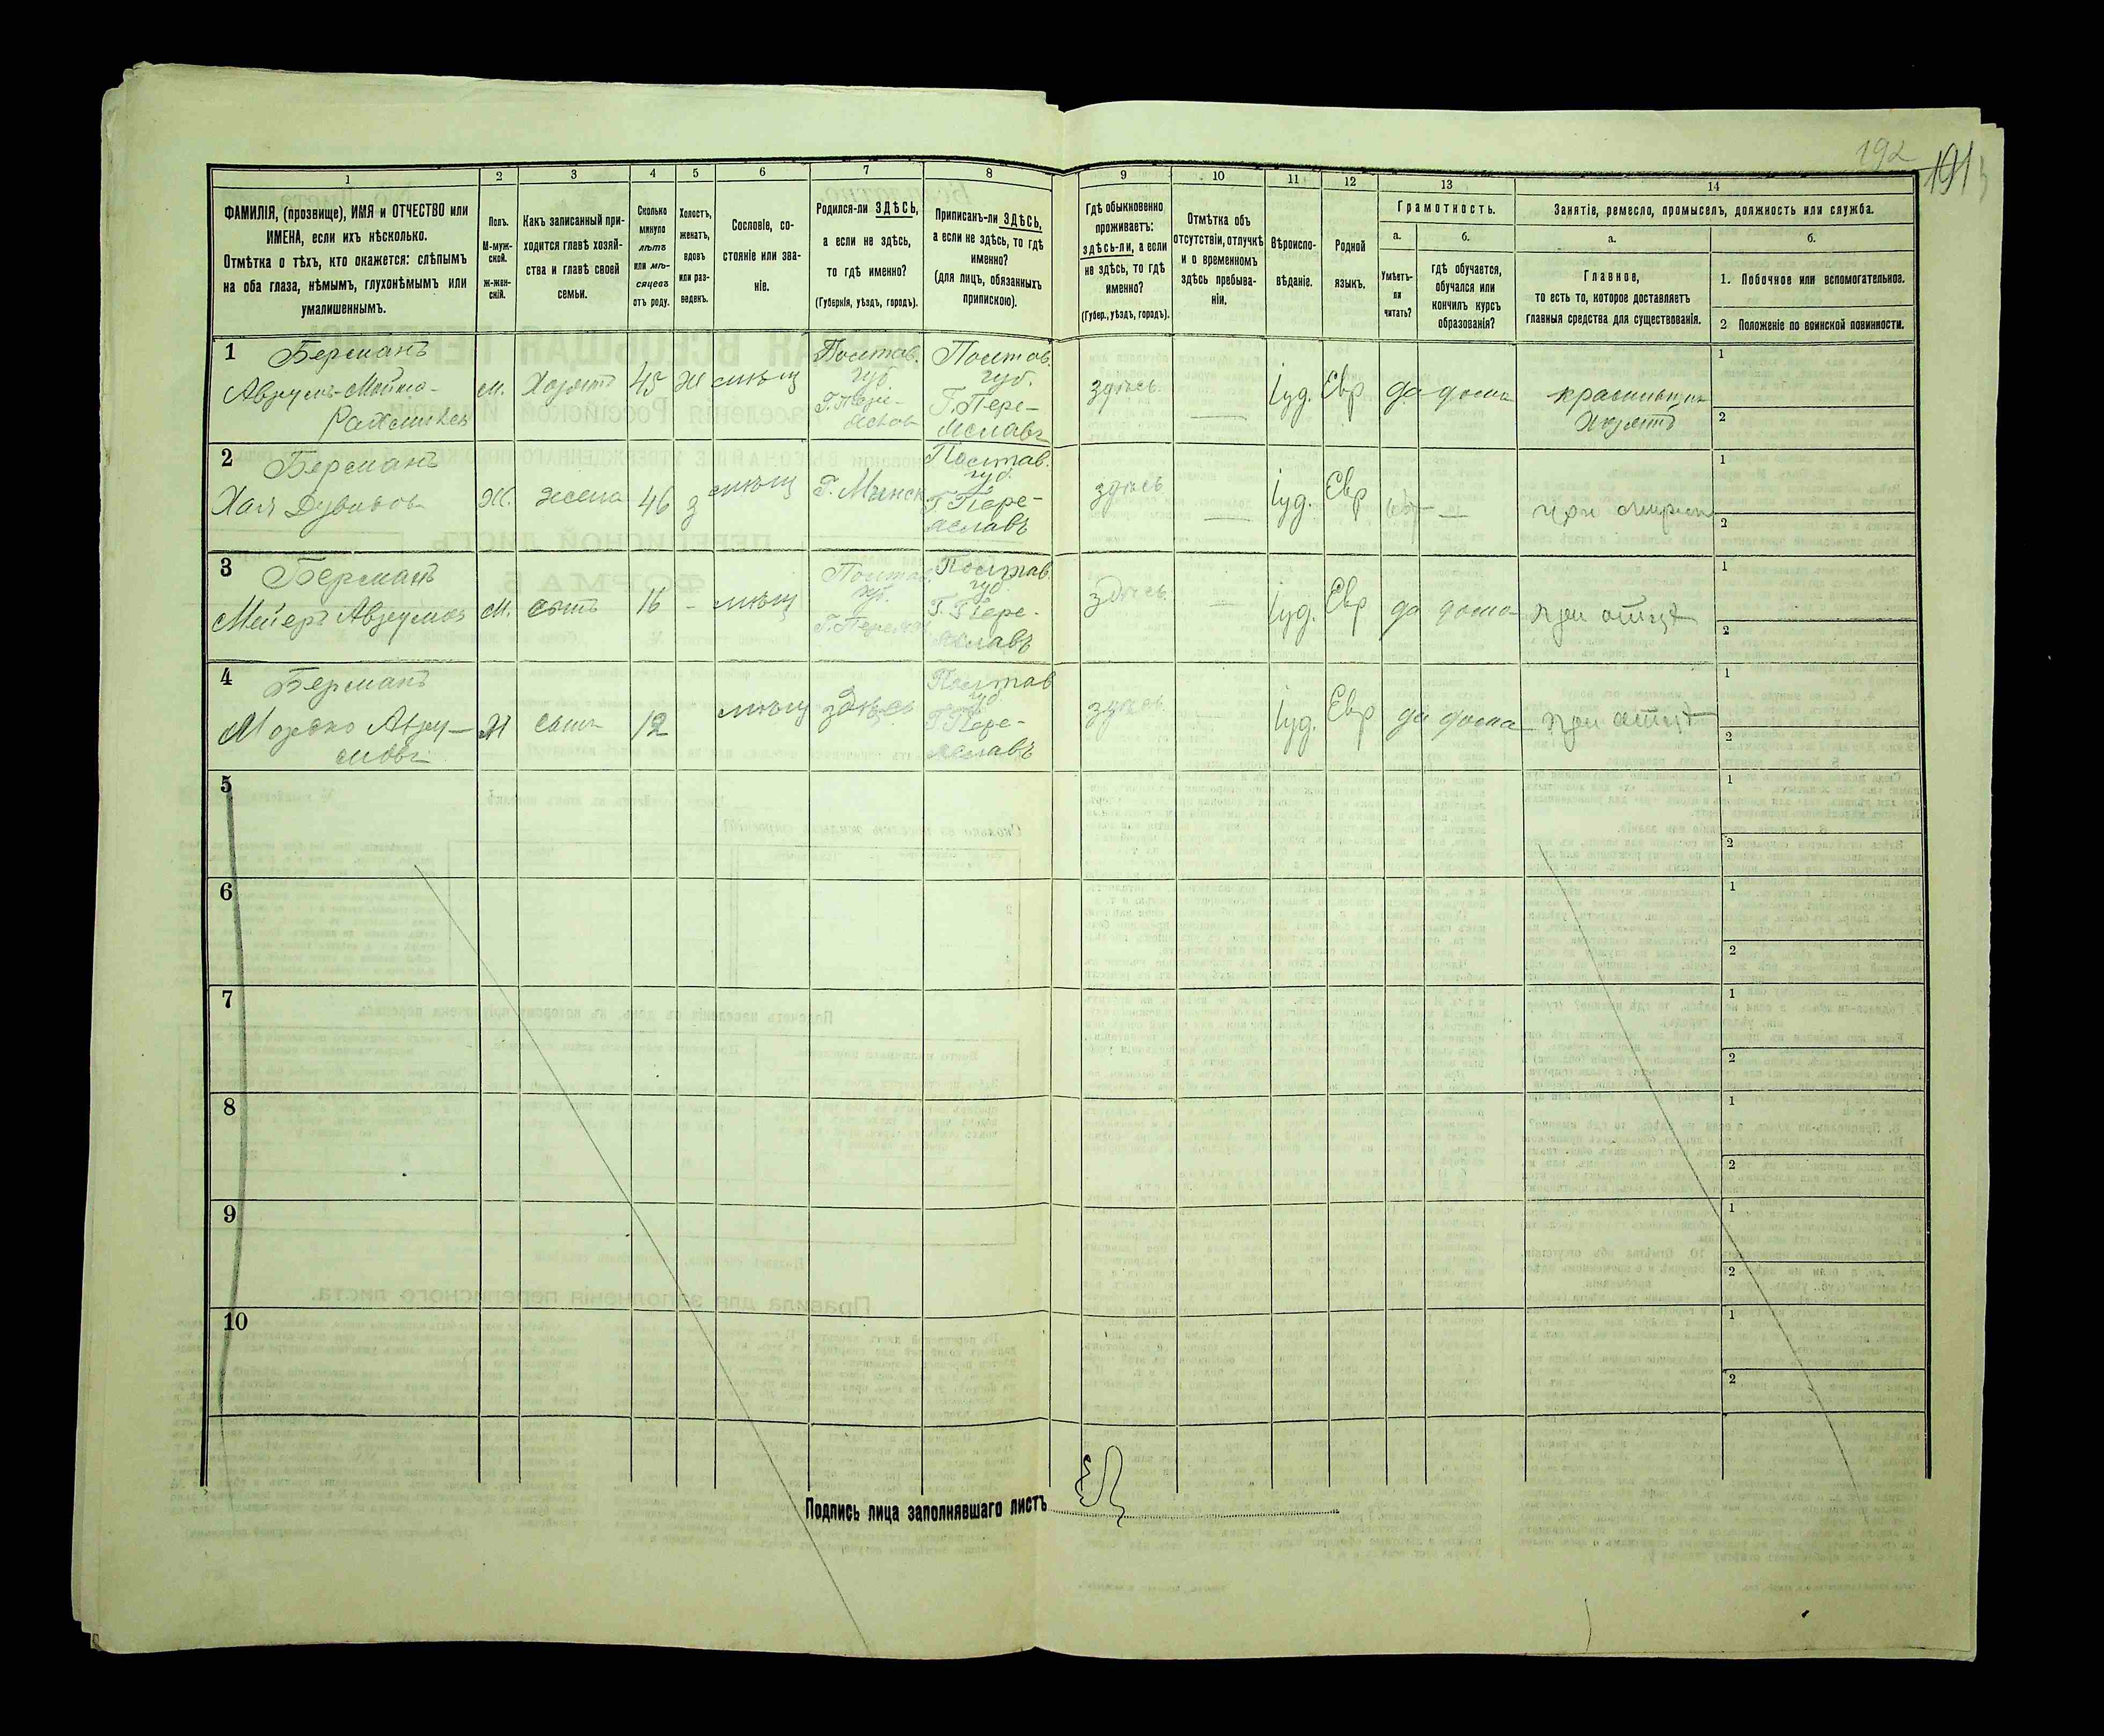 192 191
1
ФАМИЛІЯ, (прозвище), ИМЯ и ОТЧЕСТВО или
ИМЕНА, если ихъ нѣсколько.
Отмѣтка о тѣхъ, кто окажется: слѣпымъ
на оба глаза, нѣмымъ, глухонѣмымъ или
умалишеннымъ.
2
Полъ.
М-муж-
ской.
ж-жен-
скій.
3
Какъ записанный при-
ходится главѣ хозяй-
ства и главѣ своей
семьи.
4
Сколько
минуло
лѣтъ
или мѣ-
сяцевъ
отъ роду.
5
Холостъ,
женатъ,
вдовъ
или раз-
веденъ.
6
Сословіе, со-
стояніе или зва-
ніе.
7
Родился-ли ЗДѢСЬ,
а если не здѣсь,
то гдѣ именно?
(Губернія, уѣздъ, городъ).
8
Приписанъ-ли ЗДѢСЬ,
а если не здѣсь, то гдѣ
именно?
(для лицъ, обязанныхъ
припискою).
9
Гдѣ обыкновенно
проживаетъ:
здѣсь-ли, а если
не здѣсь, то гдѣ
именно?
(Губер., уѣздъ, городъ).
10
Отмѣтка объ
отсутствіи, отлучкѣ
и о временномъ
здѣсь пребыва-
ніи.
11
Вѣроиспо-
вѣданіе.
12
Родной
языкъ.
13
Грамотность.
а.
Умѣетъ-
ли
читать?
б.
гдѣ обучается,
обучался или
кончилъ курсъ
образованія?
14
Занятіе, ремесло, промыселъ, должность или служба.
а.
Главное,
то есть то, которое доставляетъ
главныя средства для существованія.
б.
1. Побочное или вспомогательное.
2 Положеніе по воинской повинности.
1
Берманъ
Аврумъ-Мойша-
м.
45
Ж
мѣщ
Полтав.
губ.
Г. Пере-
Полтав.
губ.
Г. Пере-
яславъ
здѣсь
—
Іуд.
Евр
да
дома
1
2
2
Берманъ
Хая
Ж.
жена
46
з
мѣщ
Г. Минск
Полтав.
губ.
Г. Пере-
яславъ
здѣсь
—
Іуд.
Евр
—
при
1
2
3
Берманъ
Мейеръ Аврумов
М.
сынъ
16
-
мѣщ
Полтав.
губ.
Полтав.
губ.
Г. Пере-
яславъ
здѣсь
—
Іуд.
Евр
да
дома
при отцѣ
1
2
4
Берманъ
Мордко Авру-
мовъ
М
сынъ
12
мѣщ
здѣсь
Полтав
губ.
Г. Пере-
яславъ
здѣсь
—
Іуд.
Евр
да
дома
при отцѣ
1
2
5
1
2
6
1
2
7
1
2
8
1
2
9
1
2
10
1
2
Подпись лица заполнявшаго листъ